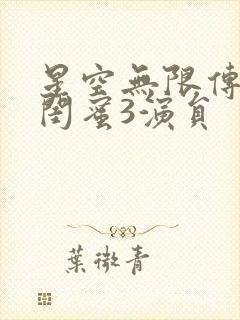 星空無限傳
閨蜜3演員
葉微青